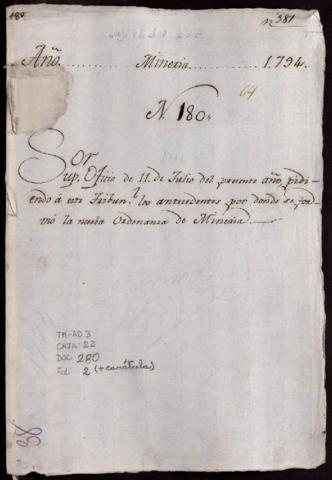 180
n 381
Año. Mineria 1.794.
64
N. 180.
Sor
Sup. Oficio de 11. de Julio del presente año, pidi-
endo á este Tribun.l los antecedentes por donde se for-
mó la nueva Ordenanza de Mineria.
TM-AD 3
CAJA: 22
DOC: 280
Fol: 2 (+ carátula)
38